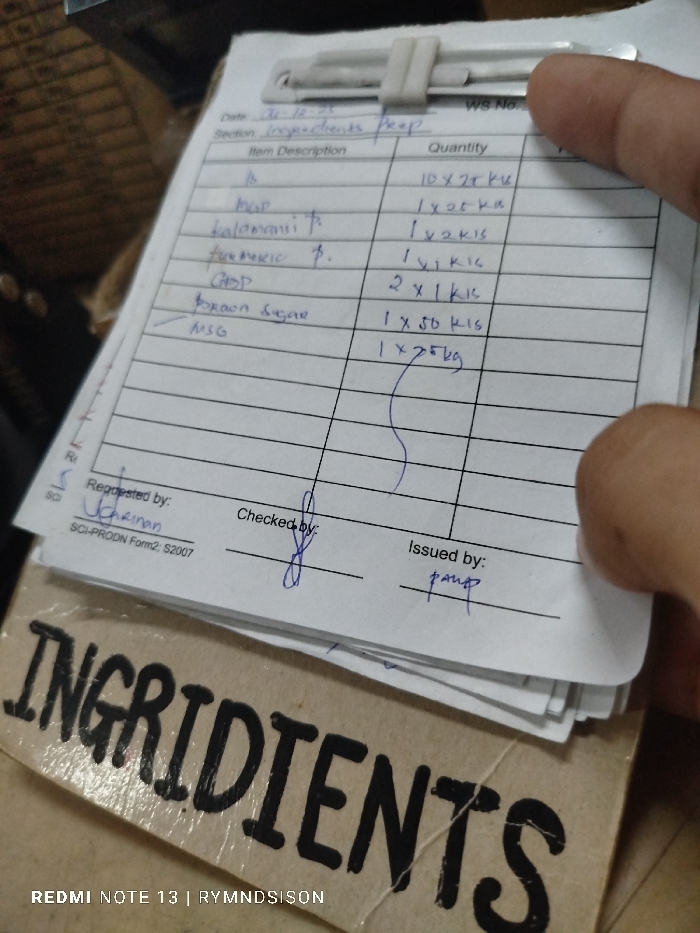 Date:
WS No.
Section: Ingredients Prep
Item Description Quantity
10 x 25 kls
1 x 25 kls
kalamansi P. 1 x 2 kls
turmeric P. 1 x 1 kls
2 x 1 kls
Brown Sugar 1 x 50 kls
MSG 1 x 25kg
Requested by:
Checked by:
Issued by:
SCI-PRODN Form2; S2007
INGRIDIENTS
REDMI NOTE 13 | RYMNDSISON